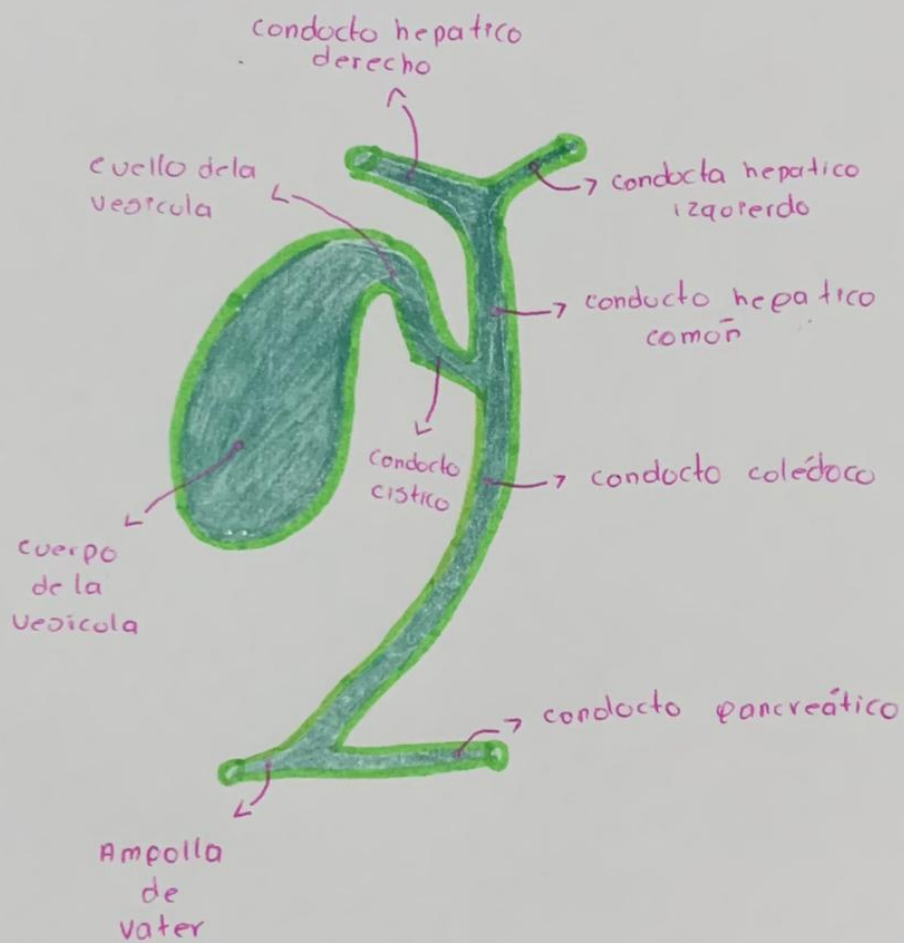 conducto hepatico
derecho
cuello dela
vesicula
conducta hepatico
izquierdo
conducto hepatico
común
conducto
cistico
conducto colédoco
cuerpo
de la
vesicula
conducto pancreático
Ampolla
de
vater